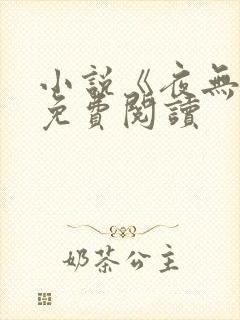 小說《夜無
免費閱讀
奶茶公主